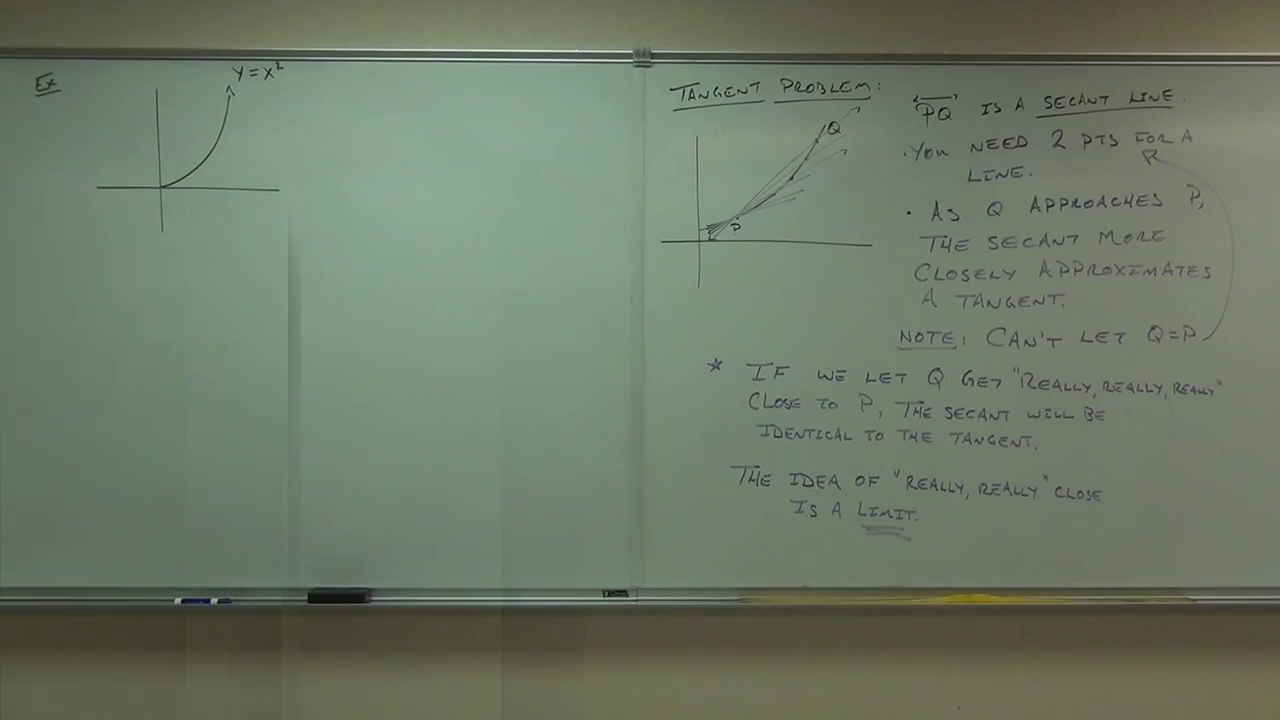 Ex
Y = X²
TANGENT PROBLEM:
Q
P
PQ IS A SECANT LINE.
· YOU NEED 2 PTS FOR A
LINE.
· AS Q APPROACHES P,
THE SECANT MORE
CLOSELY APPROXIMATES
A TANGENT.
NOTE: CAN'T LET Q=P
* IF WE LET Q GET "REALLY, REALLY, REALLY"
CLOSE TO P, THE SECANT WILL BE
IDENTICAL TO THE TANGENT.
THE IDEA OF "REALLY, REALLY" CLOSE
IS A LIMIT.